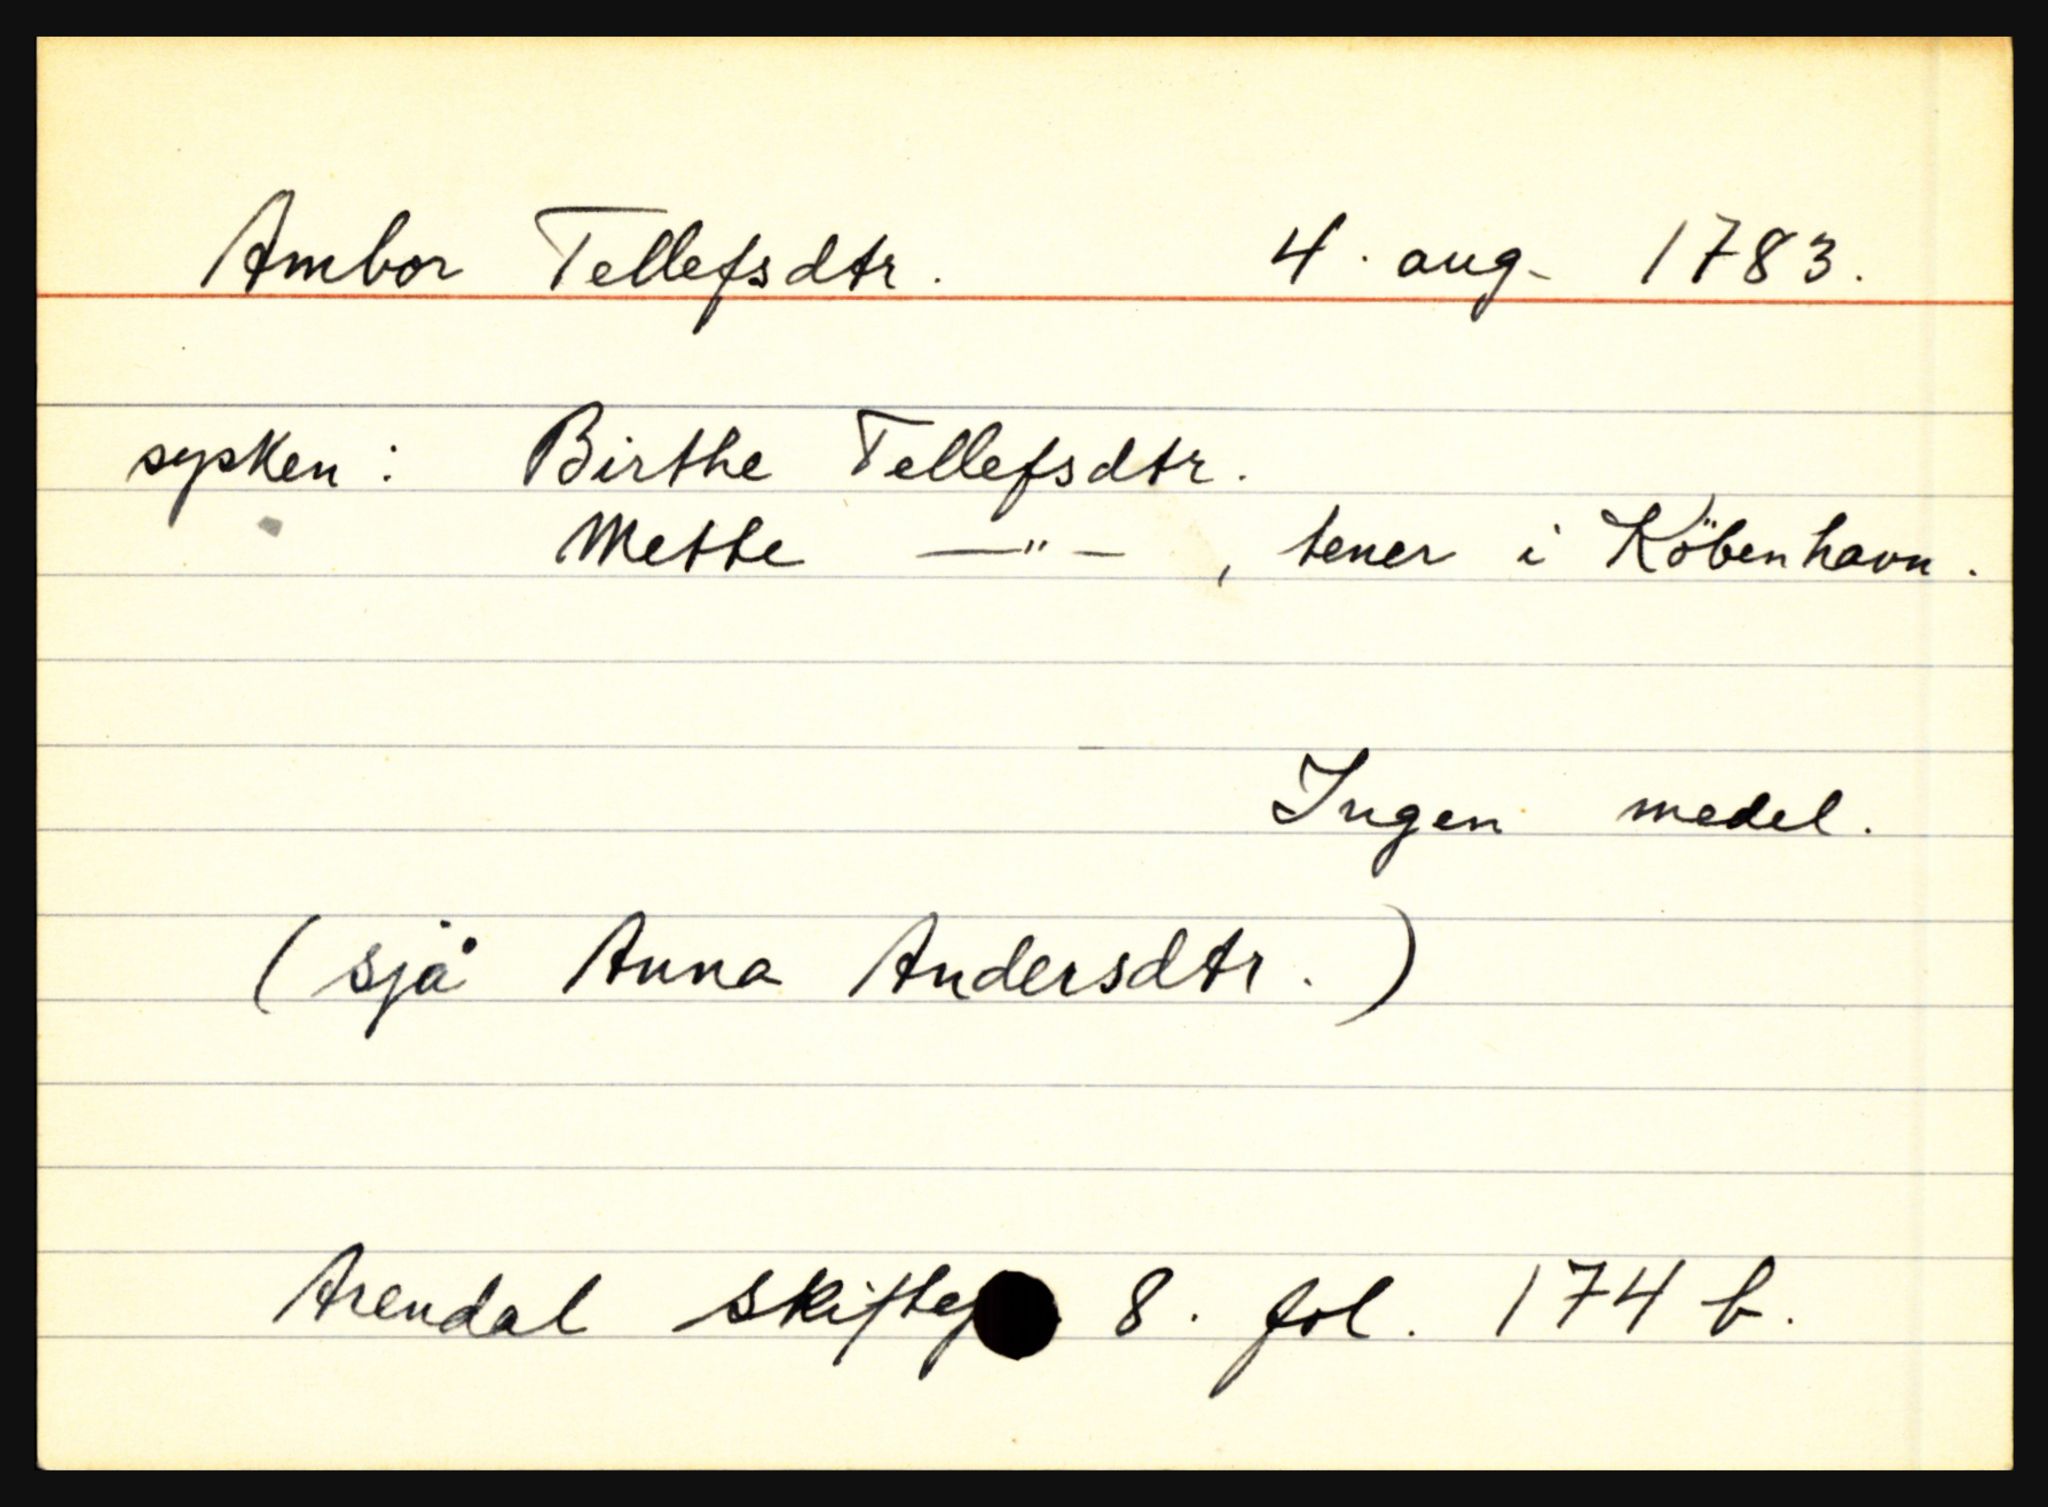 Ambor Tellefsdtr. 4. aug. 1783.
sysken: Birthe Tellefsdtr.
Mette —"—, tener i Köbenhavn.
Ingen medel.
(sjå Anna Andersdtr.)
Arendal 8. fol. 174 b.